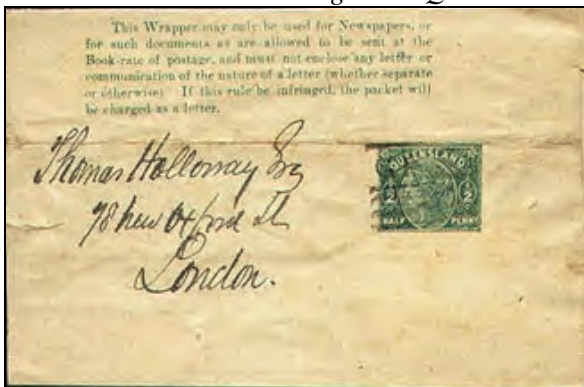 This Wrapper may only be used for Newspapers, or
for such documents as are allowed to be sent at the
Book-rate of postage, and must not enclose any letter or
communication of the nature of a letter (whether separate
or otherwise) If this rule be infringed, the packet will
be charged as a letter.
Thomas Holloway Esq
78 New Oxford St
London.
QUEENSLAND
1/2 1/2
HALF PENNY